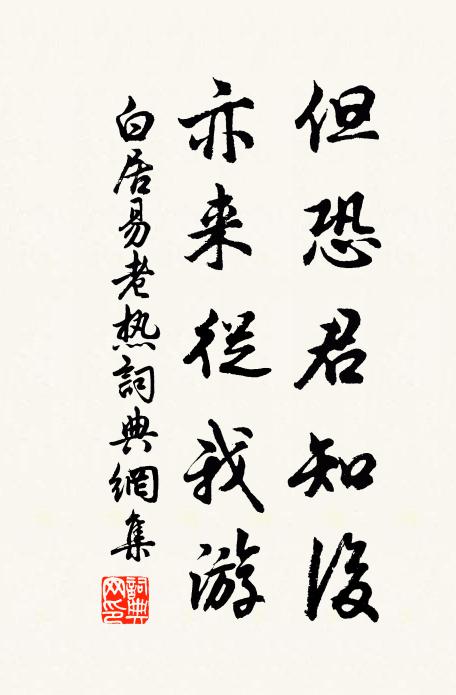 但恐君知後
亦来從我游
白居易老热詞典網集
詞典网印